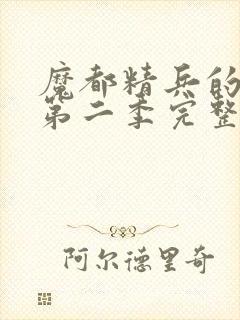 魔都精兵的
第二季完整
阿尔德里奇